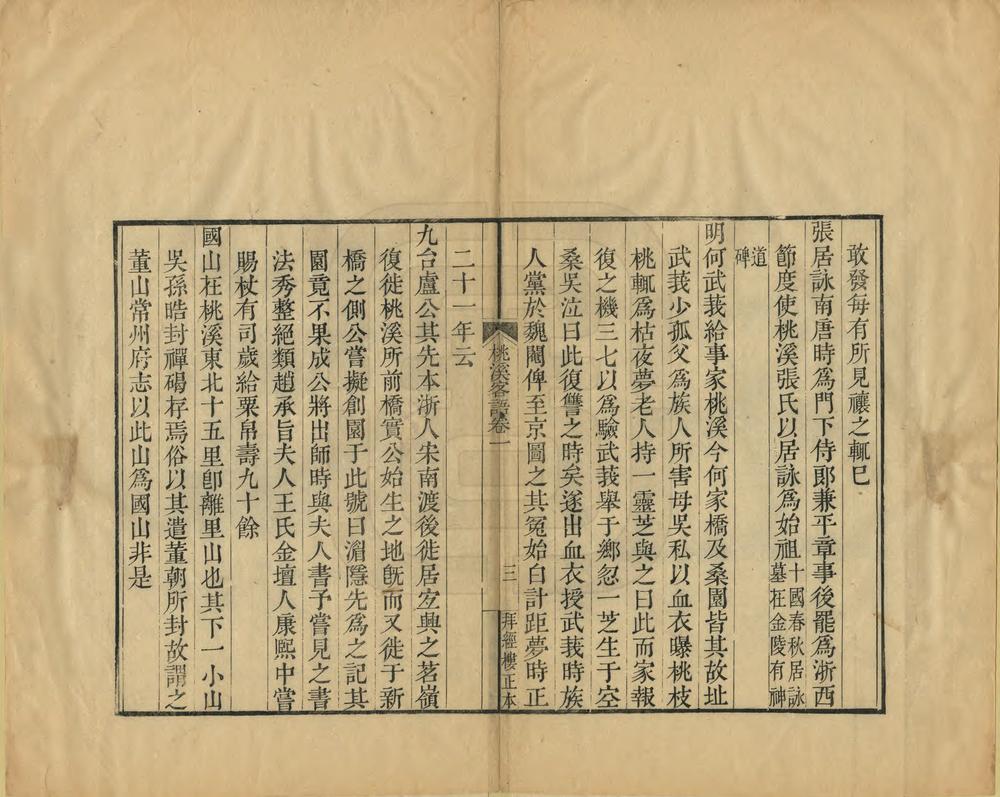 敢發每有所見禳之輒已
張居詠南唐時爲門下侍郎兼平章事後罷爲浙西
節度使桃溪張氏以居詠爲始祖十國春秋居詠墓在金陵有神
道碑
明何武莪給事家桃溪今何家橋及桑園皆其故址
武莪少孤父爲族人所害母吳私以血衣曝桃枝
桃輒爲枯夜夢老人持一靈芝與之曰此而家報
復之機三七以爲驗武莪舉于鄉忽一芝生于空
桑吳泣曰此復讐之時矣遂出血衣授武莪時族
人黨於魏閹俾至京圖之其冤始白計距夢時正
桃溪客語卷一
三
拜經樓正本
二十一年云
九台盧公其先本浙人宋南渡後徙居宜興之茗嶺
復徙桃溪所前橋實公始生之地旣而又徙于新
橋之側公嘗擬創園于此號曰湄隱先爲之記其
園竟不果成公將出師時與夫人書予嘗見之書
法秀整絕類趙承旨夫人王氏金壇人康熙中嘗
賜杖有司歲給粟帛壽九十餘
國山在桃溪東北十五里卽離里山也其下一小山
吳孫晧封禪碣存焉俗以其遣董朝所封故謂之
董山常州府志以此山爲國山非是